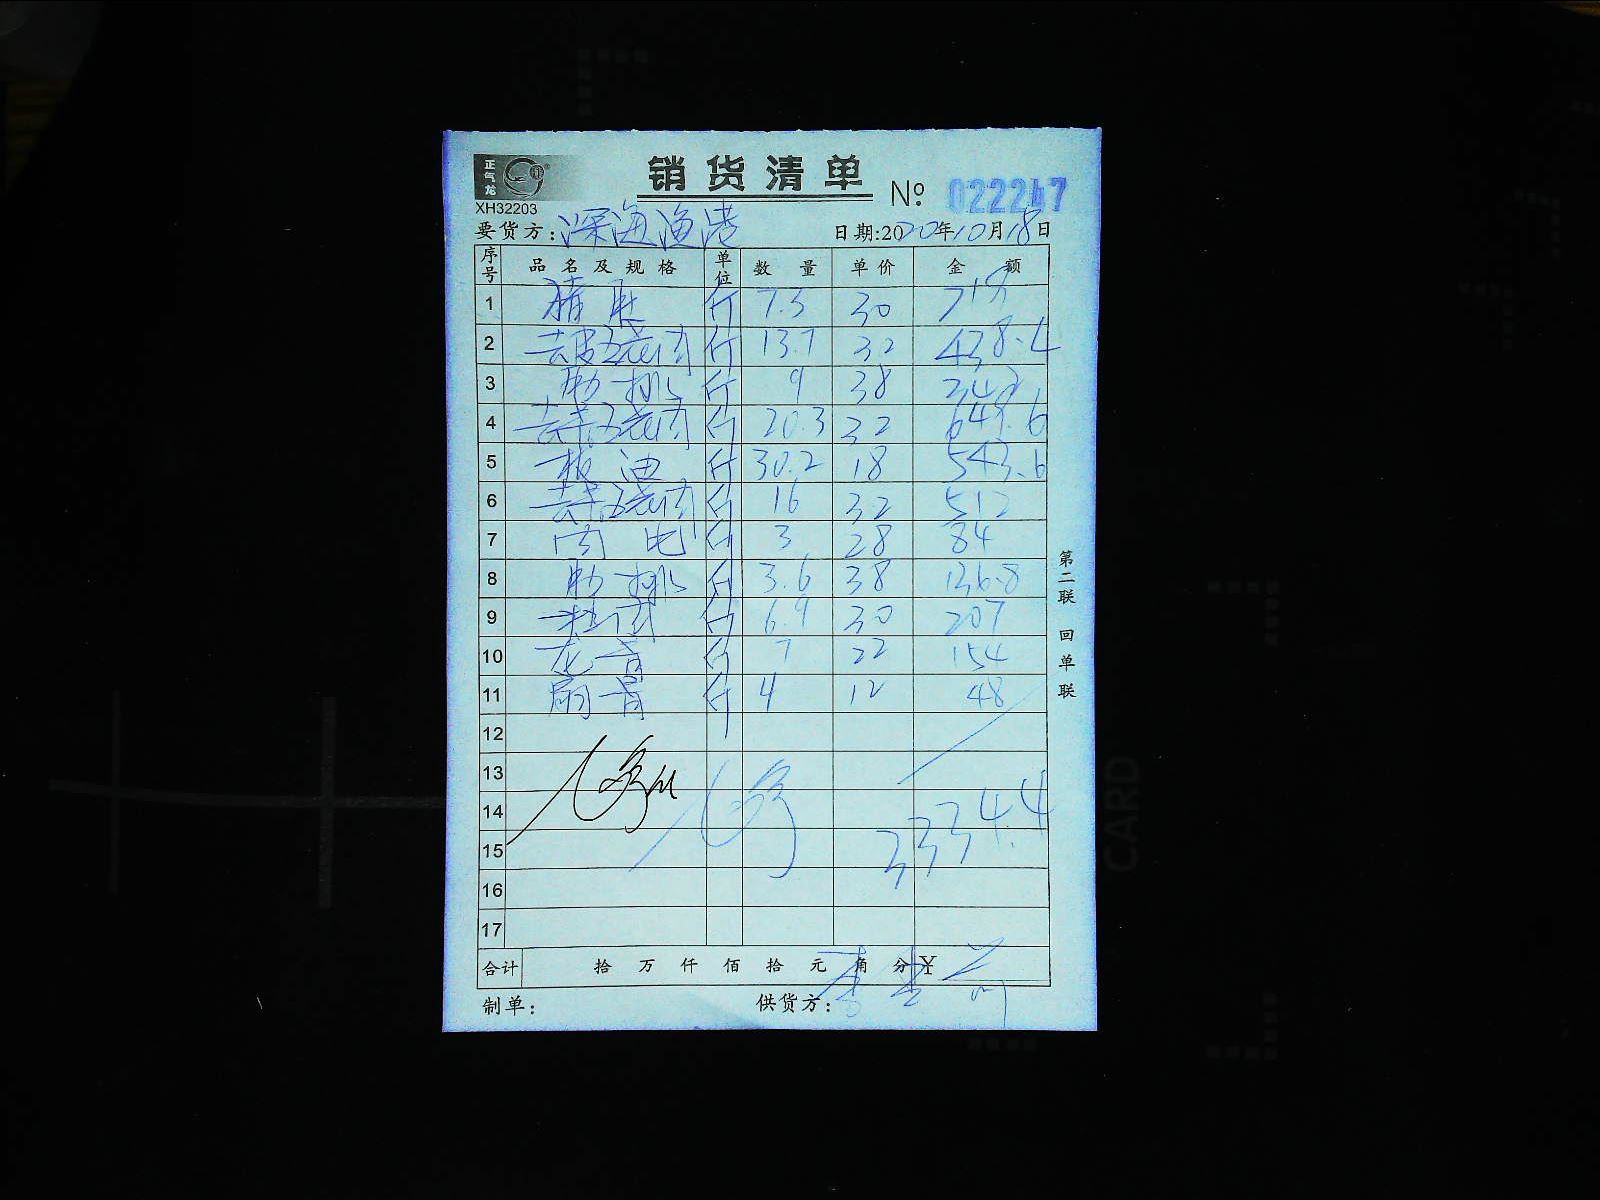 正气龙
销货清单
XH32203
№ 022247
要货方: 深海渔港 日期:2020年10月18日
序号 品名及规格 单位 数量 单价 金额
1 精 斤 7.3 30 219
2 去皮五花肉 斤 13.7 32 438.4
3 肋排 斤 9 38 342
4 去皮五花肉 斤 20.3 32 649.6
5 板油 斤 30.2 18 543.6
6 去皮五花肉 斤 16 32 512
7 肉 斤 3 28 84
8 肋排 斤 3.6 38 136.8
9 肉 斤 6.9 30 207
10 龙骨 斤 7 22 154
11 扇骨 斤 4 12 48
12
13
14
3334.4
15
16
17
合计 拾 万 仟 佰 拾 元 角 分 ¥
制单: 供货方: 李
第二联 回单联
CARD